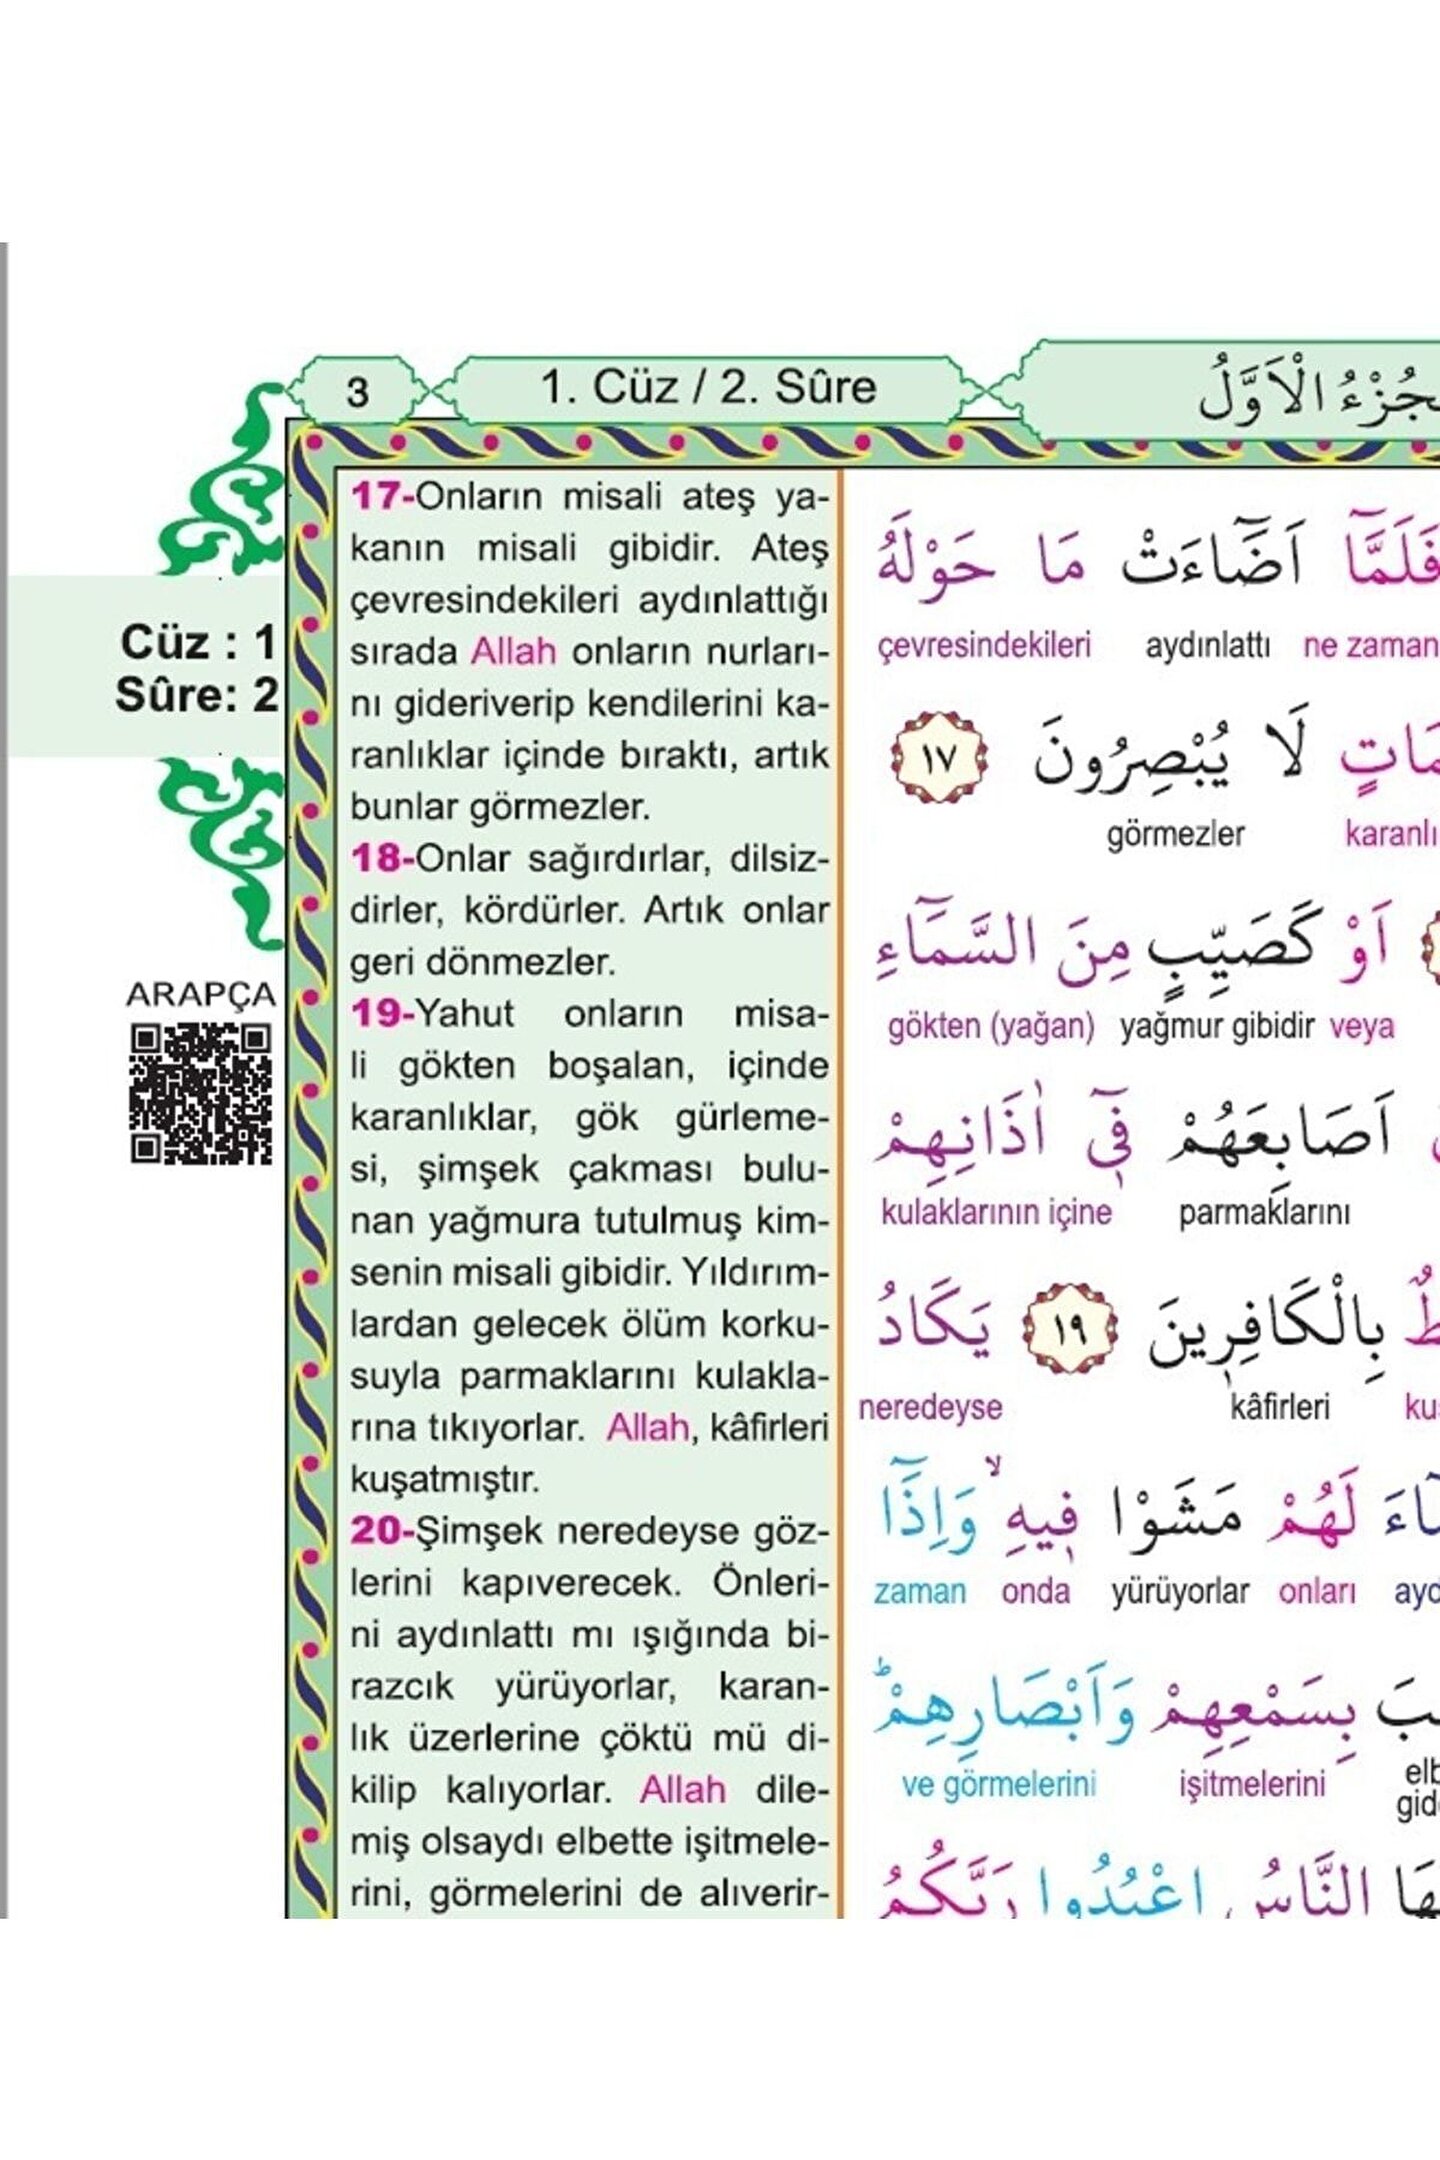 3
1. Cüz / 2. Sûre
اَلْاَوَّلُ
Cüz : 1
Sûre: 2
ARAPÇA
17-Onların misali ateş ya-
kanın misali gibidir. Ateş
çevresindekileri aydınlattığı
sırada Allah onların nurları-
nı gideriverip kendilerini ka-
ranlıklar içinde bıraktı, artık
bunlar görmezler.
18-Onlar sağırdırlar, dilsiz-
dirler, kördürler. Artık onlar
geri dönmezler.
19-Yahut onların misa-
li gökten boşalan, içinde
karanlıklar, gök gürleme-
si, şimşek çakması bulu-
nan yağmura tutulmuş kim-
senin misali gibidir. Yıldırım-
lardan gelecek ölüm korku-
suyla parmaklarını kulakla-
rına tıkıyorlar. Allah, kâfirleri
kuşatmıştır.
20-Şimşek neredeyse göz-
lerini kapıverecek. Önleri-
ni aydınlattı mı ışığında bi-
razcık yürüyorlar, karan-
lık üzerlerine çöktü mü di-
kilip kalıyorlar. Allah dile-
miş olsaydı elbette işitmele-
rini, görmelerini de alıverir-
فَلَمَّٓا اَضَٓاءَتْ مَا حَوْلَهُ
çevresindekileri aydınlattı ne zaman
لَا يُبْصِرُونَ ١٧
görmezler karanlı
اَوْ كَصَيِّبٍ مِنَ السَّمَٓاءِ
gökten (yağan) yağmur gibidir veya
اَصَابِعَهُمْ فٖٓي اٰذَانِهِمْ
kulaklarının içine parmaklarını
بِالْكَافِرٖينَ ١٩ يَكَادُ
neredeyse kâfirleri
لَهُمْ مَشَوْا فٖيهِۙ وَاِذَٓا
zaman onda yürüyorlar onları
بِسَمْعِهِمْ وَاَبْصَارِهِمْۜ
ve görmelerini işitmelerini
النَّاسُ اعْبُدُوا رَبَّكُمُ